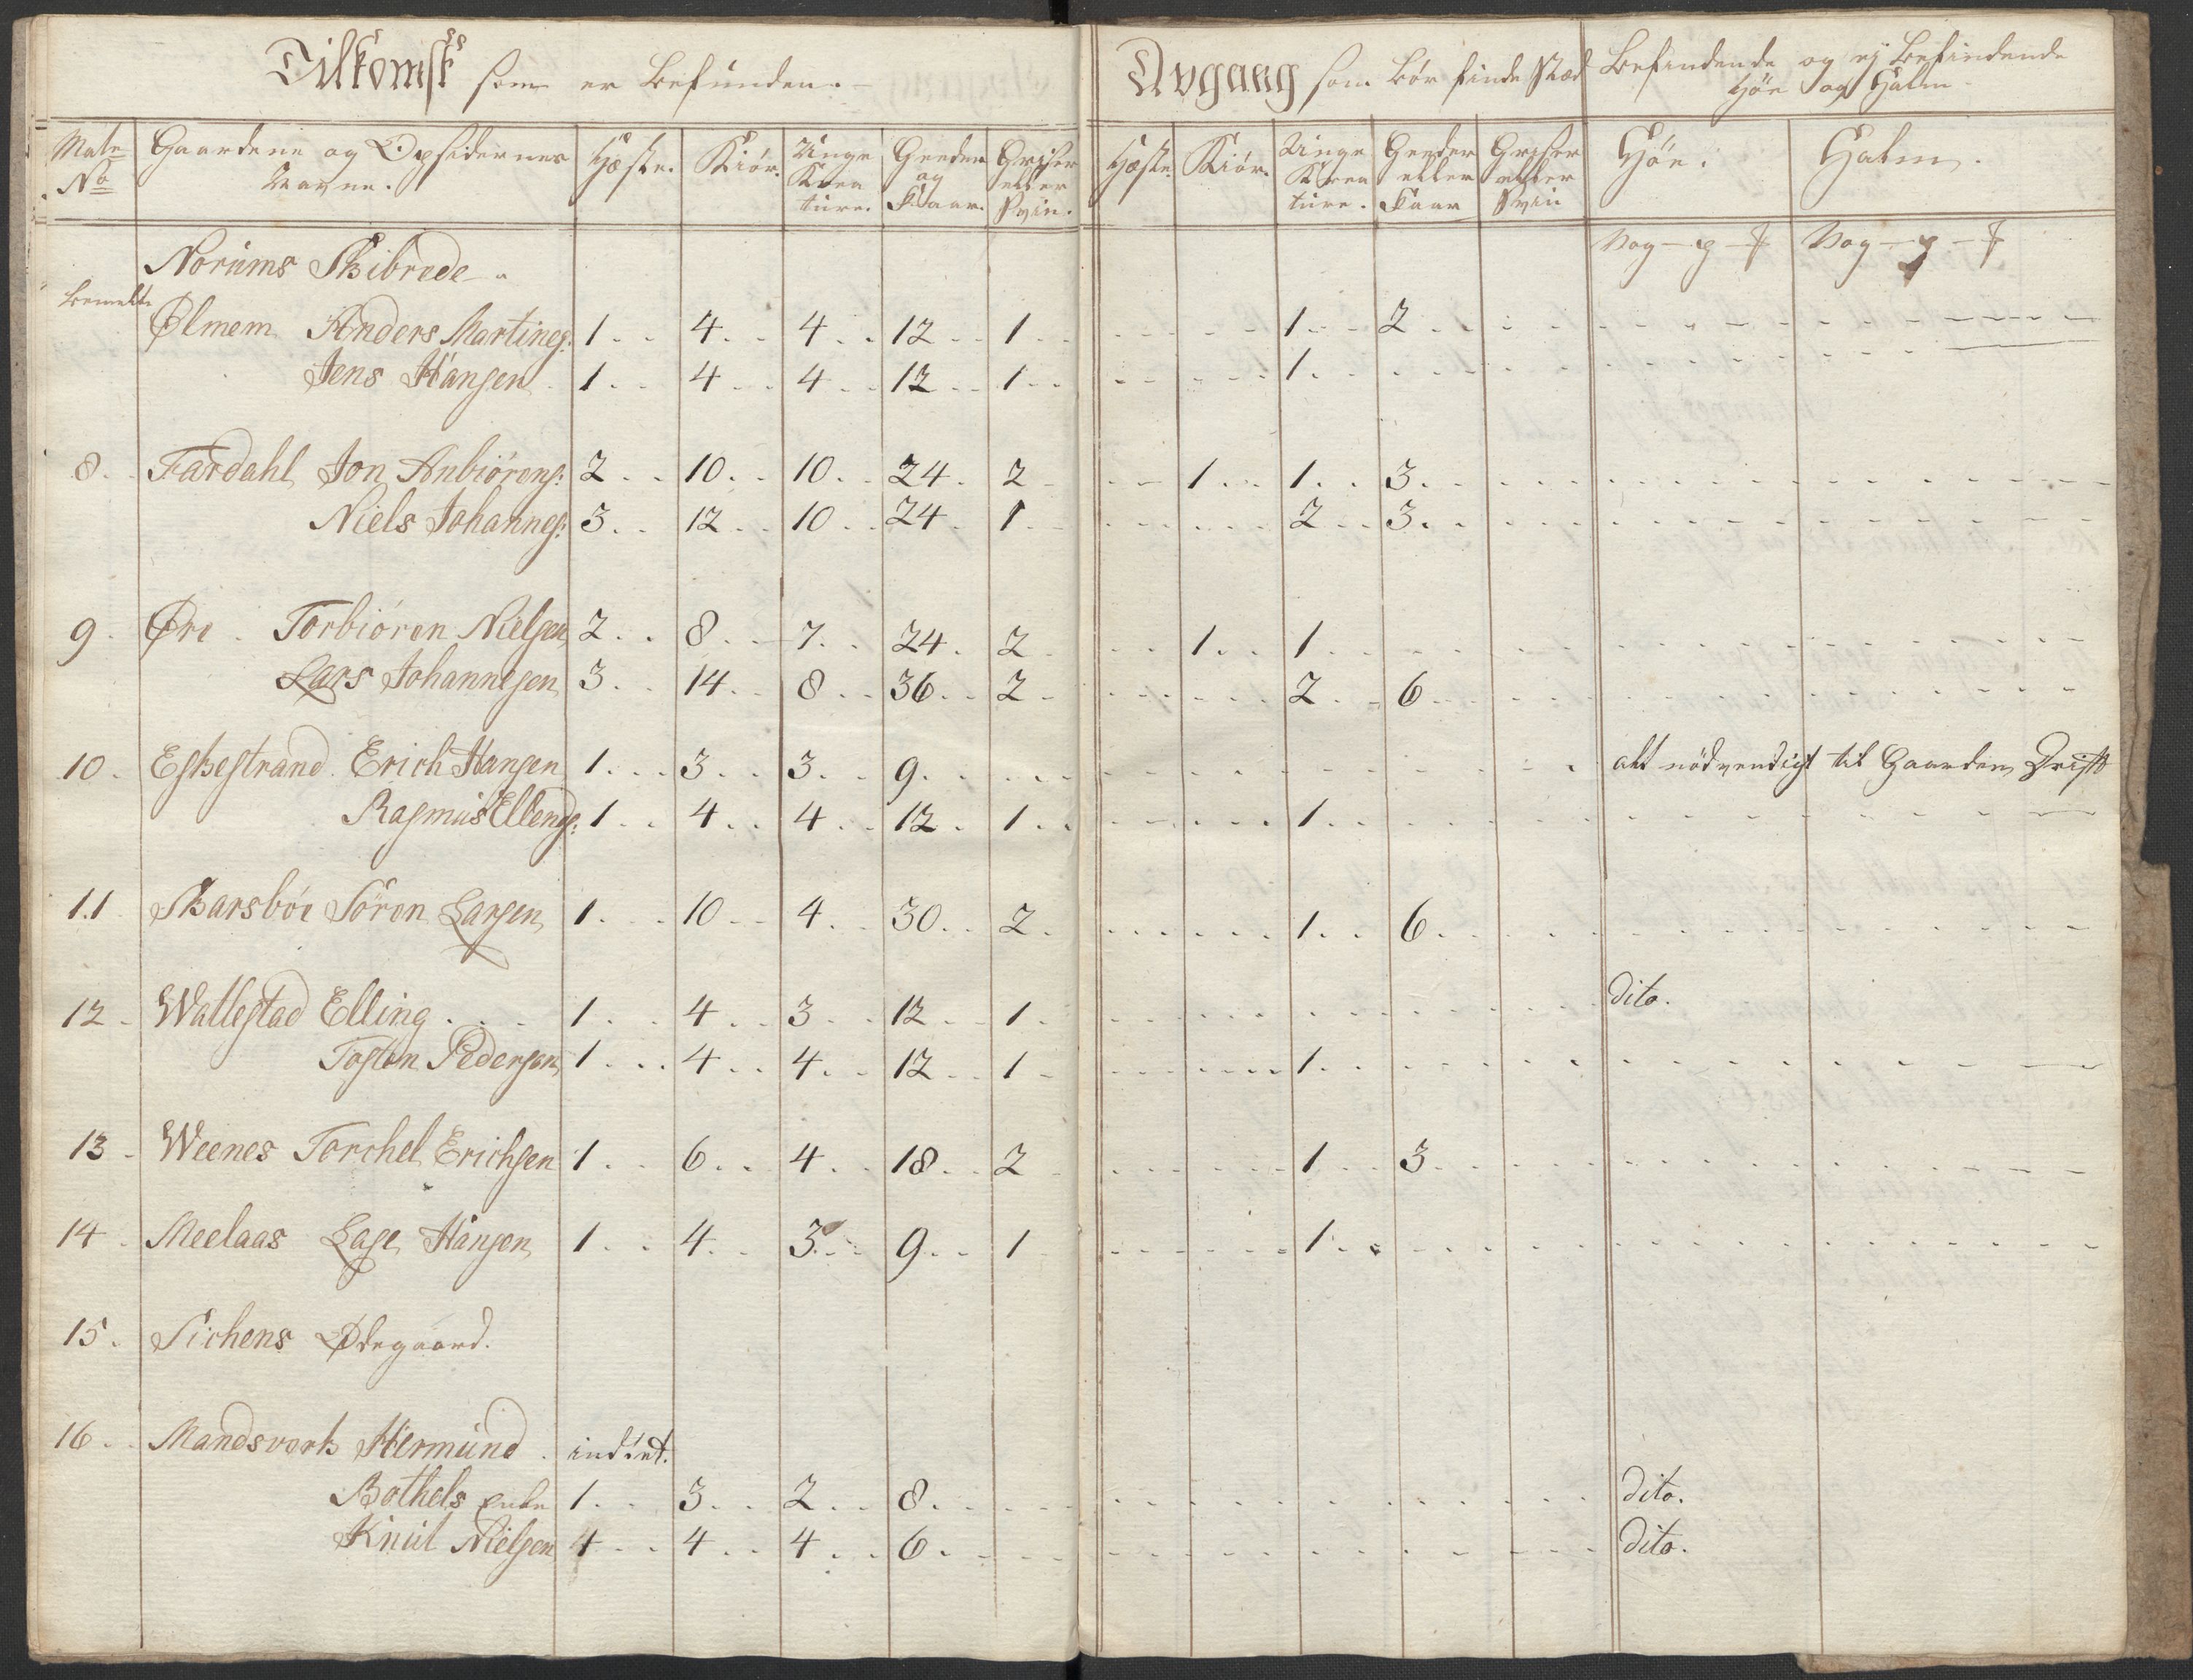 Tilkomst som er befunden.
Avgang som bör finde Stæd
Befindende og ej befindende
Höe og Halm
Mate No
Gaardene og Opsidernes Navne.
Hæste.
Kiör.
Unge Krea ture.
Geeder og Faar.
Griser eller Svin.
Hæste.
Kiör.
Unge Krea ture.
Geeder eller Faar
Griser eller Svin
Höe.
Halm.
Norums Skibrede
Vog
Vog
bemelte
Ølmem Anders Martines: 1 4 4 12 1 1 2
Jens Hansen 1 4 4 12 1 1
8. Fardahl Jon Anbiörens: 2 10 10 24 2 1 1 3
Niels Johannes: 3 12 10 24 1 2 3
9. Øre Torbiören Nielsen 2 8 7 24 2 1 1
Lars Johannesen 3 14 8 36 2 2 6
10. Eskestrand Erich Hansen 1 3 3 9 alt nödvendigt til Gaardens Drift
Rasmus Ellends: 1 4 4 12 1 1
11 Skarsböe Sören Larsen 1 10 4 30 2 1 6
12 Wallestad Elling 1 4 3 12 1 dito.
Tosten Pedersen 1 4 4 12 1 1
13 Weenes Torchel Erichsen 1 6 4 18 2 1 3
14 Meelaas Lasse Hansen 1 4 3 9 1 1
15. Sichens Ødegaard.
16. Mandsverk Hermund indtet.
Bothels Enke 1 3 2 8 dito.
Knut Nielsen 4 4 4 6 dito.